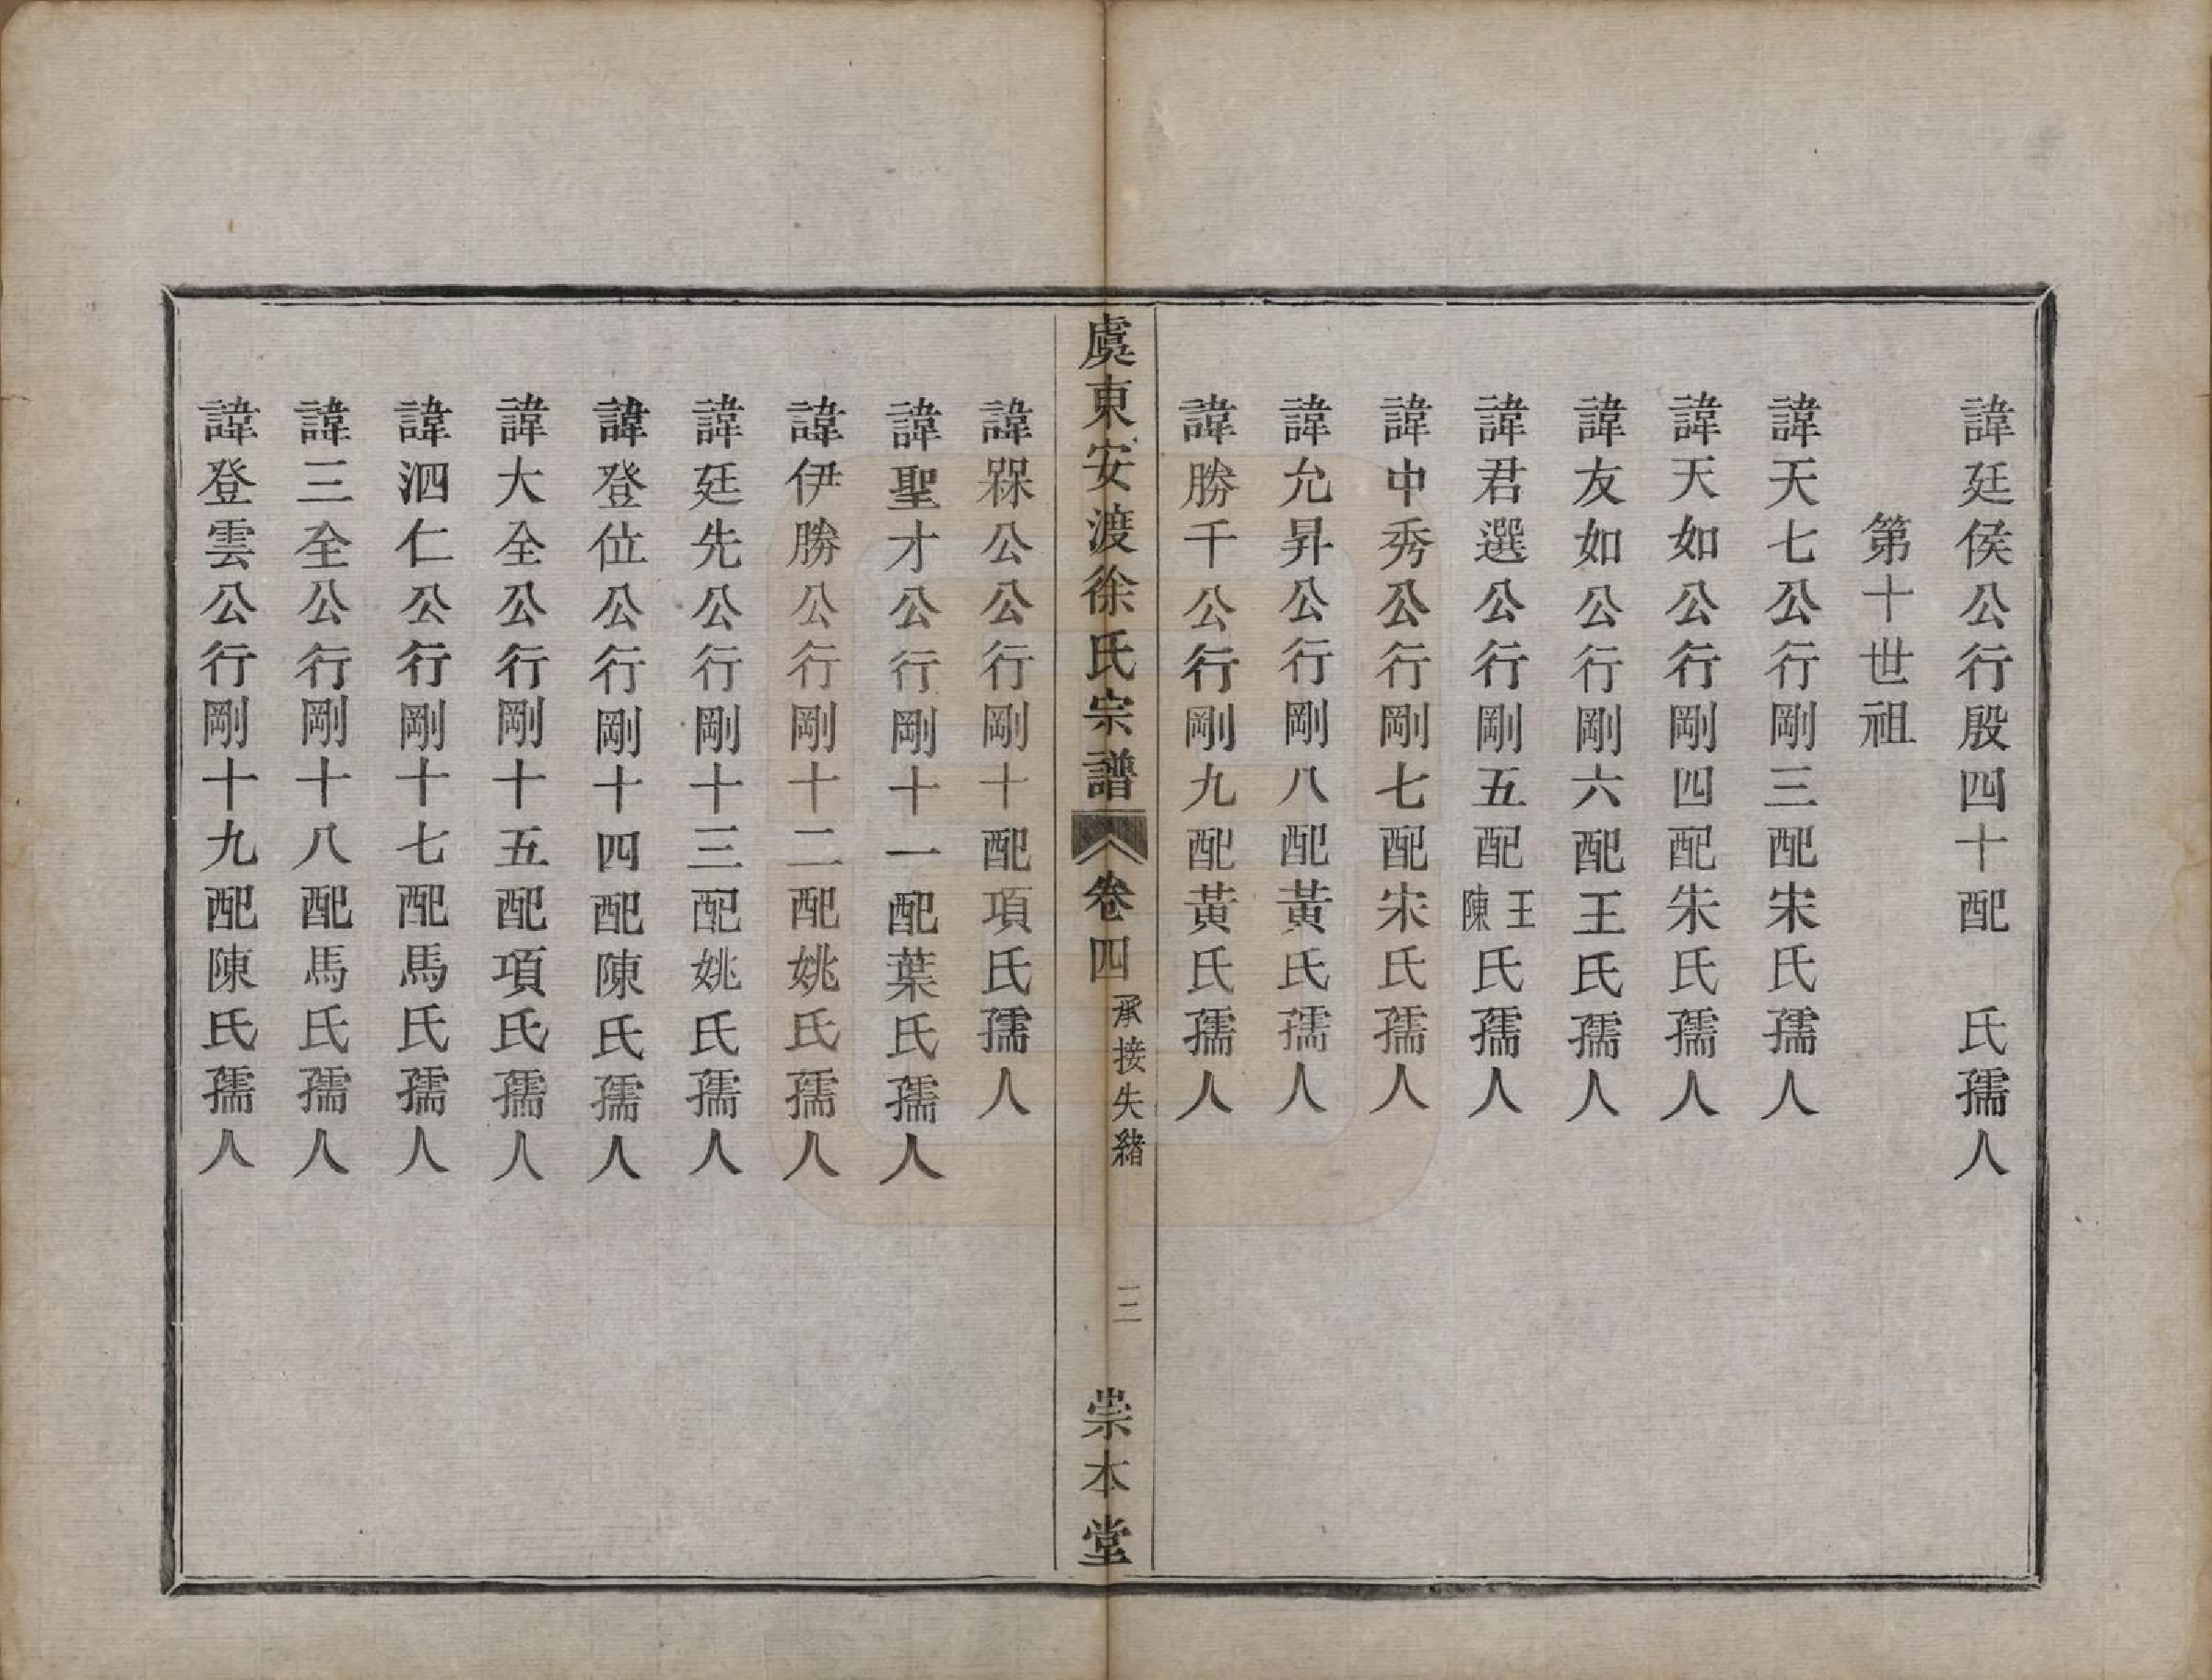 諱廷侯公行殷四十配　氏孺人
第十世祖
諱天七公行剛三配宋氏孺人
諱天如公行剛四配朱氏孺人
諱友如公行剛六配王氏孺人
諱君選公行剛五配王陳氏孺人
諱中秀公行剛七配宋氏孺人
諱允昇公行剛八配黃氏孺人
諱勝千公行剛九配黃氏孺人
虞東安渡徐氏宗譜　卷四　承接失緒　三　崇本堂
諱槑公公行剛十配項氏孺人
諱聖才公行剛十一配葉氏孺人
諱伊勝公行剛十二配姚氏孺人
諱廷先公行剛十三配姚氏孺人
諱登位公行剛十四配陳氏孺人
諱大全公行剛十五配項氏孺人
諱泗仁公行剛十七配馬氏孺人
諱三全公行剛十八配馬氏孺人
諱登雲公行剛十九配陳氏孺人